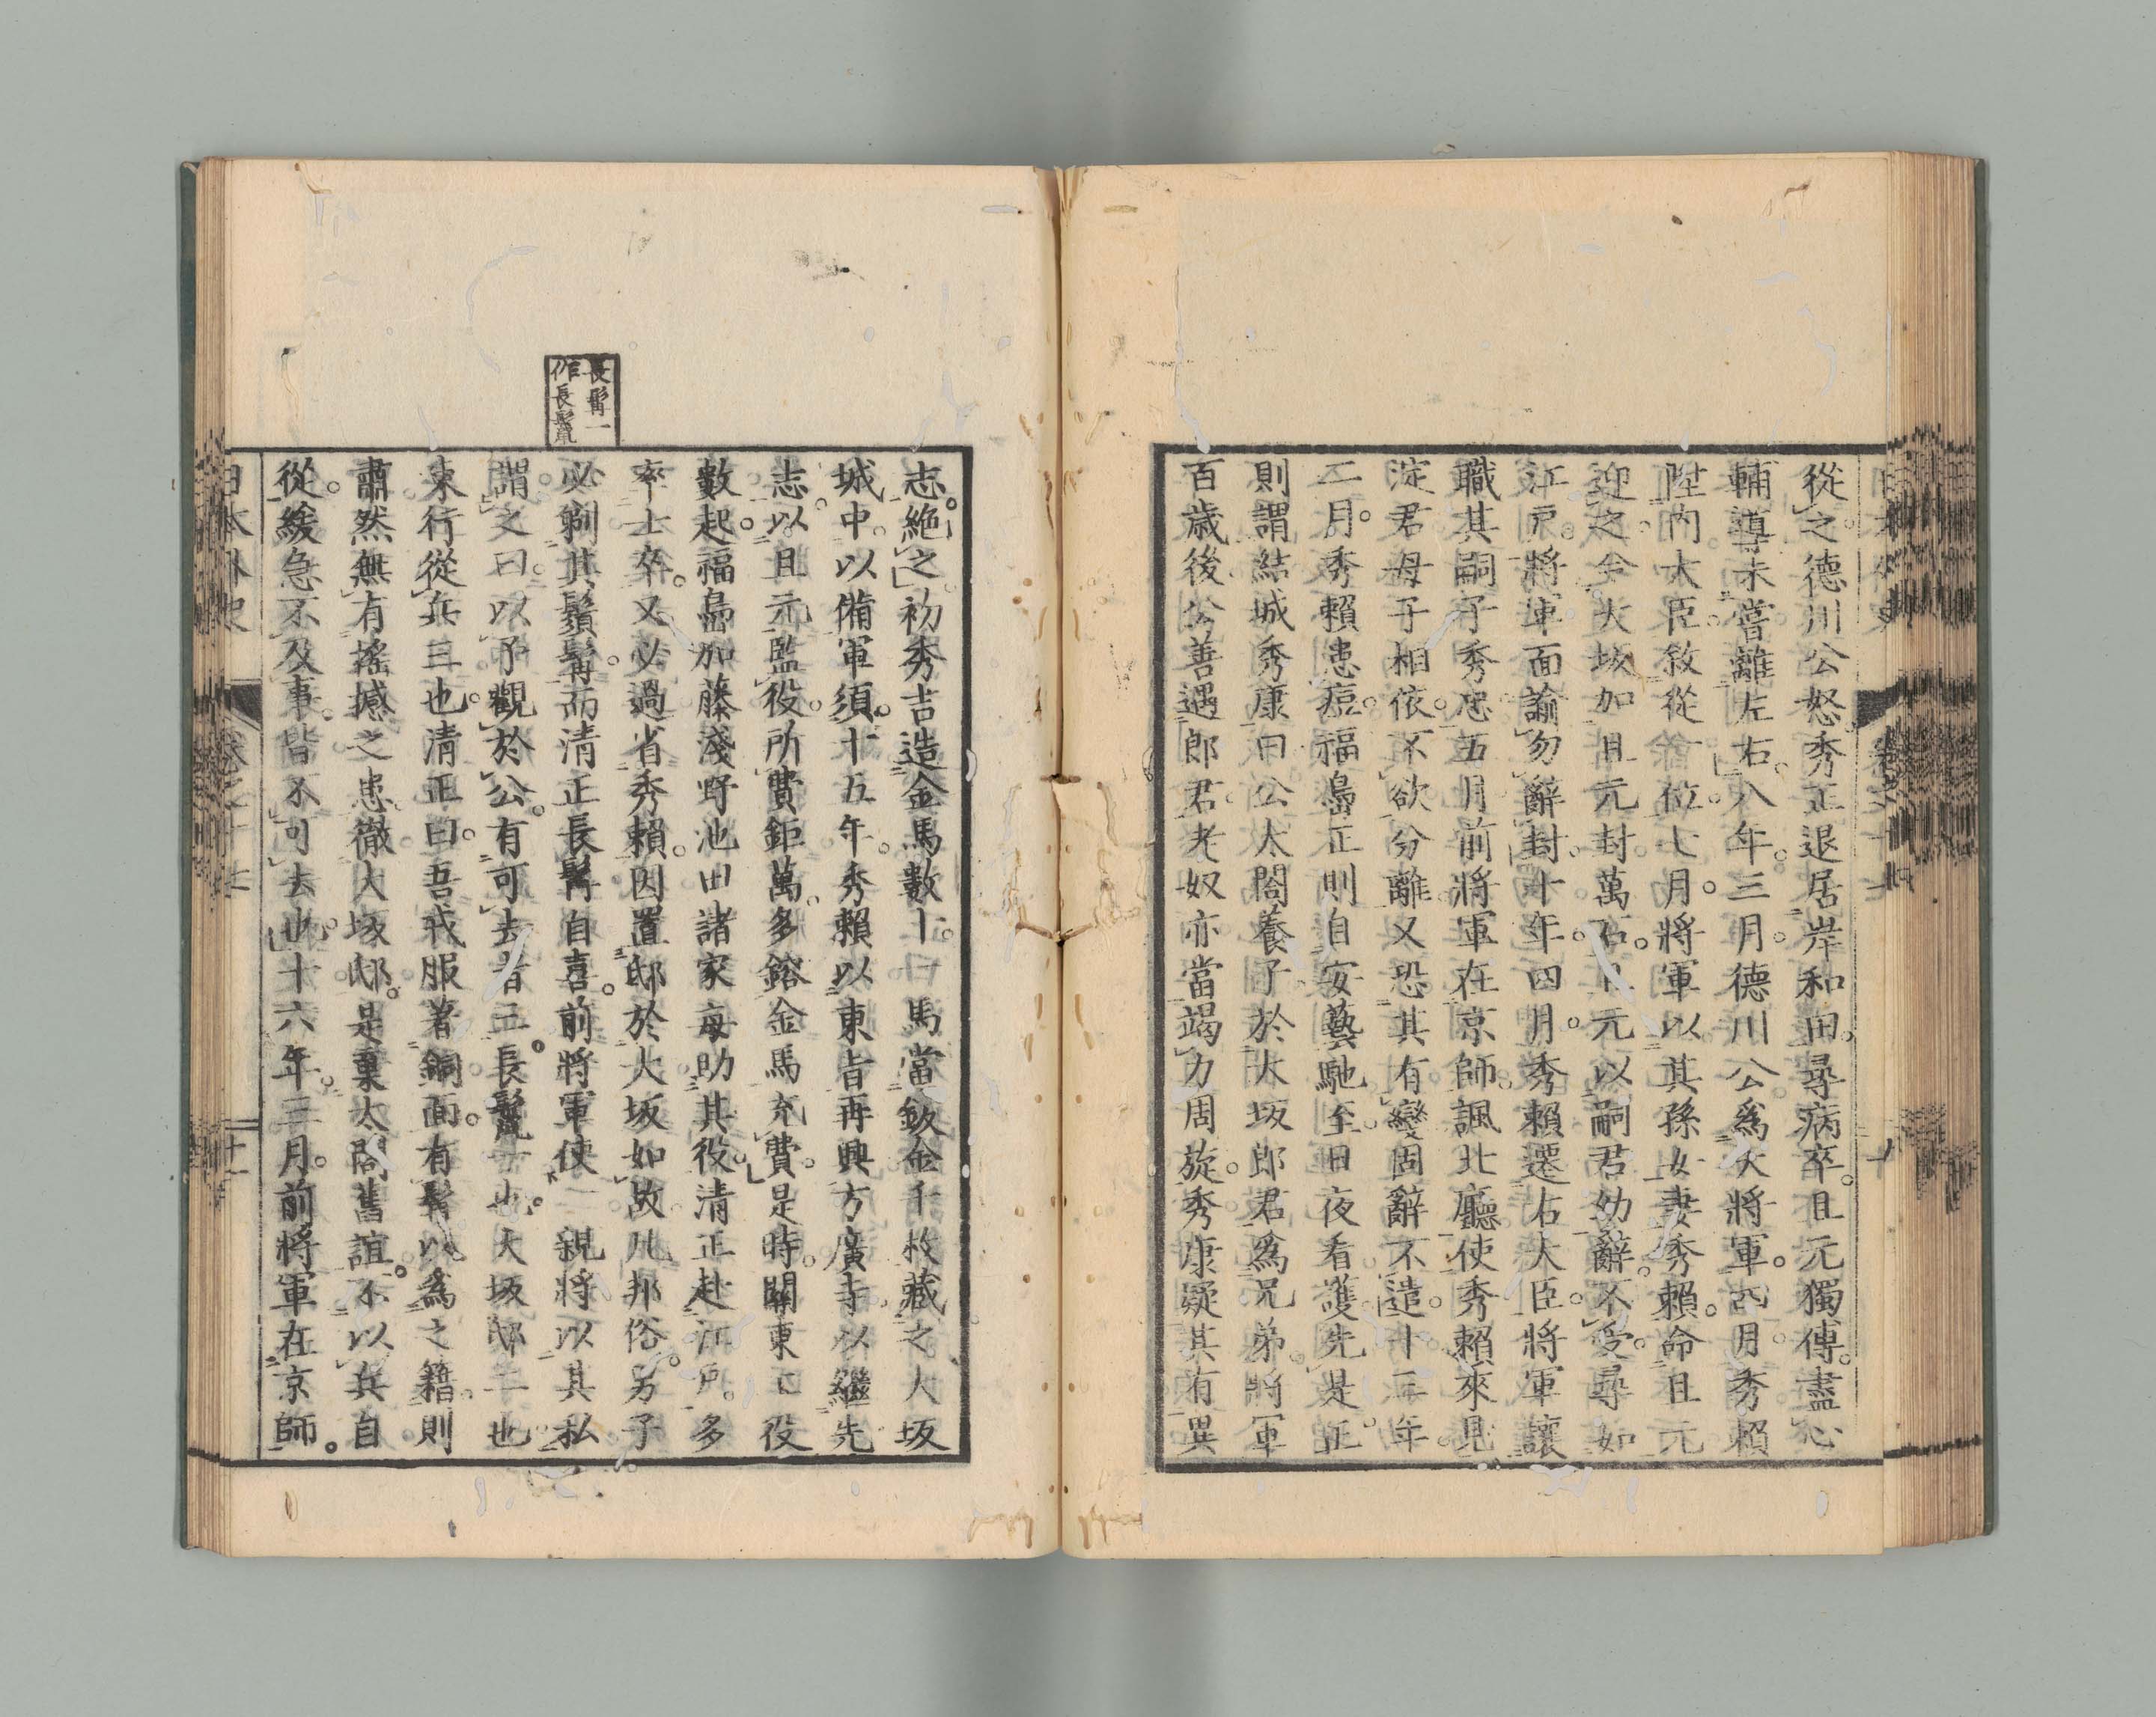 從之德川公怒秀正退居岸和田尋病卒且元獨傅盡心
輔導未嘗離左右八年三月德川公爲大將軍四月秀賴
陞內大臣敘從一位七月將軍以其孫女妻秀賴命且元
迎之令大坂加且元封萬石且元以嗣君幼辭不受尋如
江戶將軍面諭勿辭封十年四月秀賴還右大臣將軍讓
職其嗣子秀忠五月前將軍在京師諷北廳使秀賴來見
淀君母子相依不欲分離又恐其有變固辭不遣十三年
二月秀賴患痘福島正則自安藝馳至日夜看護先是正
則謂結城秀康曰公太閤養子於大坂郎君爲兄弟將軍
百歲後公善遇郎君老奴亦當竭力周旋秀康疑其有異
志絶之初秀吉造金馬數十曰馬當鈑金千枚藏之大坂
城中以備軍須十五年秀賴以東旨再興方廣寺以繼先
志以且元監役所費鉅萬多鎔金馬充費是時關東工役
數起福島加藤淺野池田諸家每助其役清正赴江戶多
率士卒又必過省秀賴因置邸於大坂如故凡邦俗男子
必剃其鬚髯而清正長髯自喜前將軍使一親將以其私
謂之曰以予觀於公有可去者三長鬣一也大坂邸二也
東行從兵三也清正曰吾戎服著銅面有髯以爲之籍則
肅然無有搖撼之患徹大坂邸是棄太閤舊誼不以兵自
從緩急不及事皆不可去也十六年三月前將軍在京師
長髯一
作長鬣
日本外史 卷之十七 十一